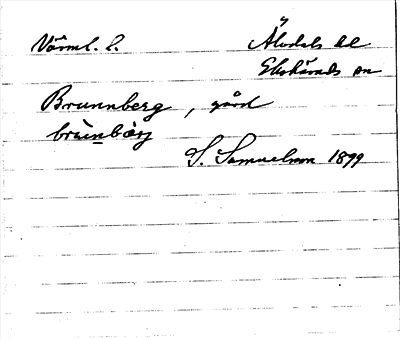 Värml. l.
Älvdals hd
Ekshärads sn
Brunnberg, gård
brùnbærj
S. Samuelson 1899